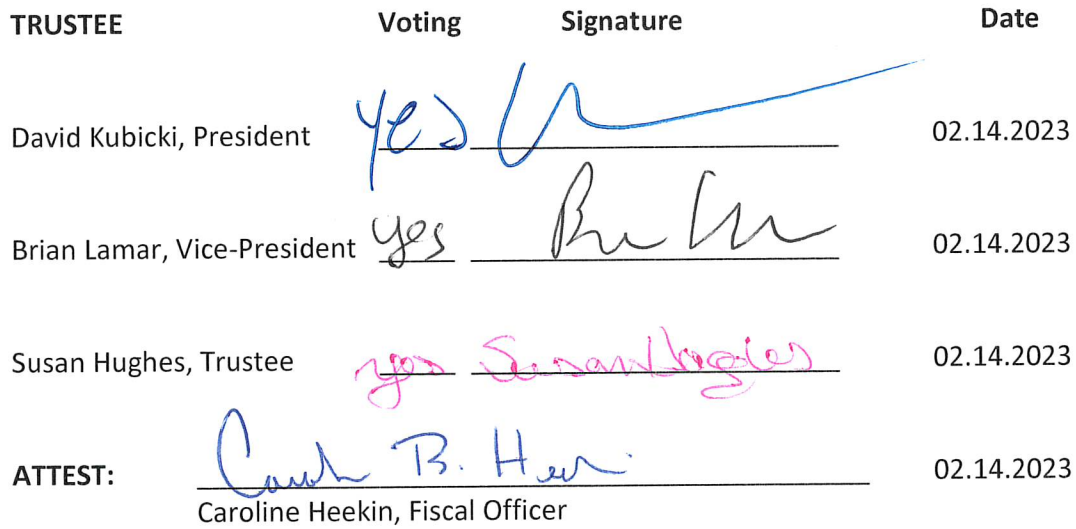 TRUSTEE Voting Signature Date
David Kubicki, President yes 02.14.2023
Brian Lamar, Vice-President yes 02.14.2023
Susan Hughes, Trustee yes Susan Hughes 02.14.2023
ATTEST: B. 02.14.2023
Caroline Heekin, Fiscal Officer